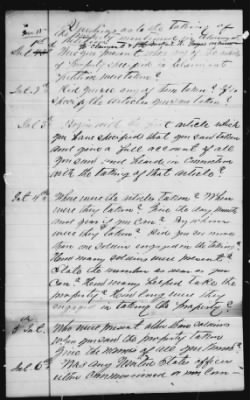 Questions as to the taking of
Int. 1st Were you present when any of the
property specified in claimants
petition was taken?
Int. 2d Did you see any of them taken? If so
specify the articles you saw taken?
Int. 3d Begin with the first article which
you have specified that you saw taken
and give a full account of all
you saw and heard in connection
with the taking of that article?
Int 4th Where were the articles taken? When
were they taken? Give the day, month
and year if you can? By whom
were they taken? Did you see more
than one soldier engaged in the taking?
How many soldiers were present?
State the number as near as you
can? How many helped take the
property? How long were they
engaged in taking the property?
5th Int. Who were present other than soldiers
when you saw the property taken
Give the names of all you know?
Int. 6th Was any United States officer
either commissioned or non com-